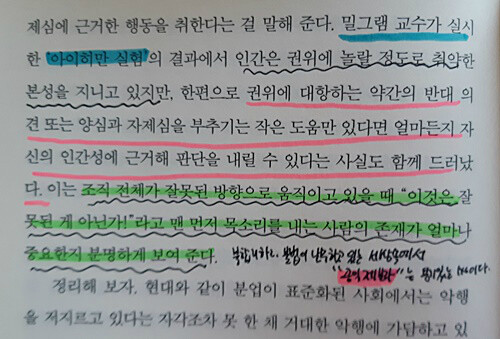 제심에 근거한 행동을 취한다는 걸 말해 준다. 밀그램 교수가 실시
한 '아이히만 실험'의 결과에서 인간은 권위에 놀랄 정도로 취약한
본성을 지니고 있지만, 한편으로 권위에 대항하는 약간의 반대 의
견 또는 양심과 자제심을 부추기는 작은 도움만 있다면 얼마든지 자
신의 인간성에 근거해 판단을 내릴 수 있다는 사실도 함께 드러났
다. 이는 조직 전체가 잘못된 방향으로 움직이고 있을 때 "이것은 잘
못된 게 아닌가!"라고 맨 먼저 목소리를 내는 사람의 존재가 얼마나
중요한지 분명하게 보여 준다. 세상속에서
"공익제보"는
정리해 보자. 현대와 같이 분업이 표준화된 사회에서는 악행
을 저지르고 있다는 자각조차 못 한 채 거대한 악행에 가담하고 있